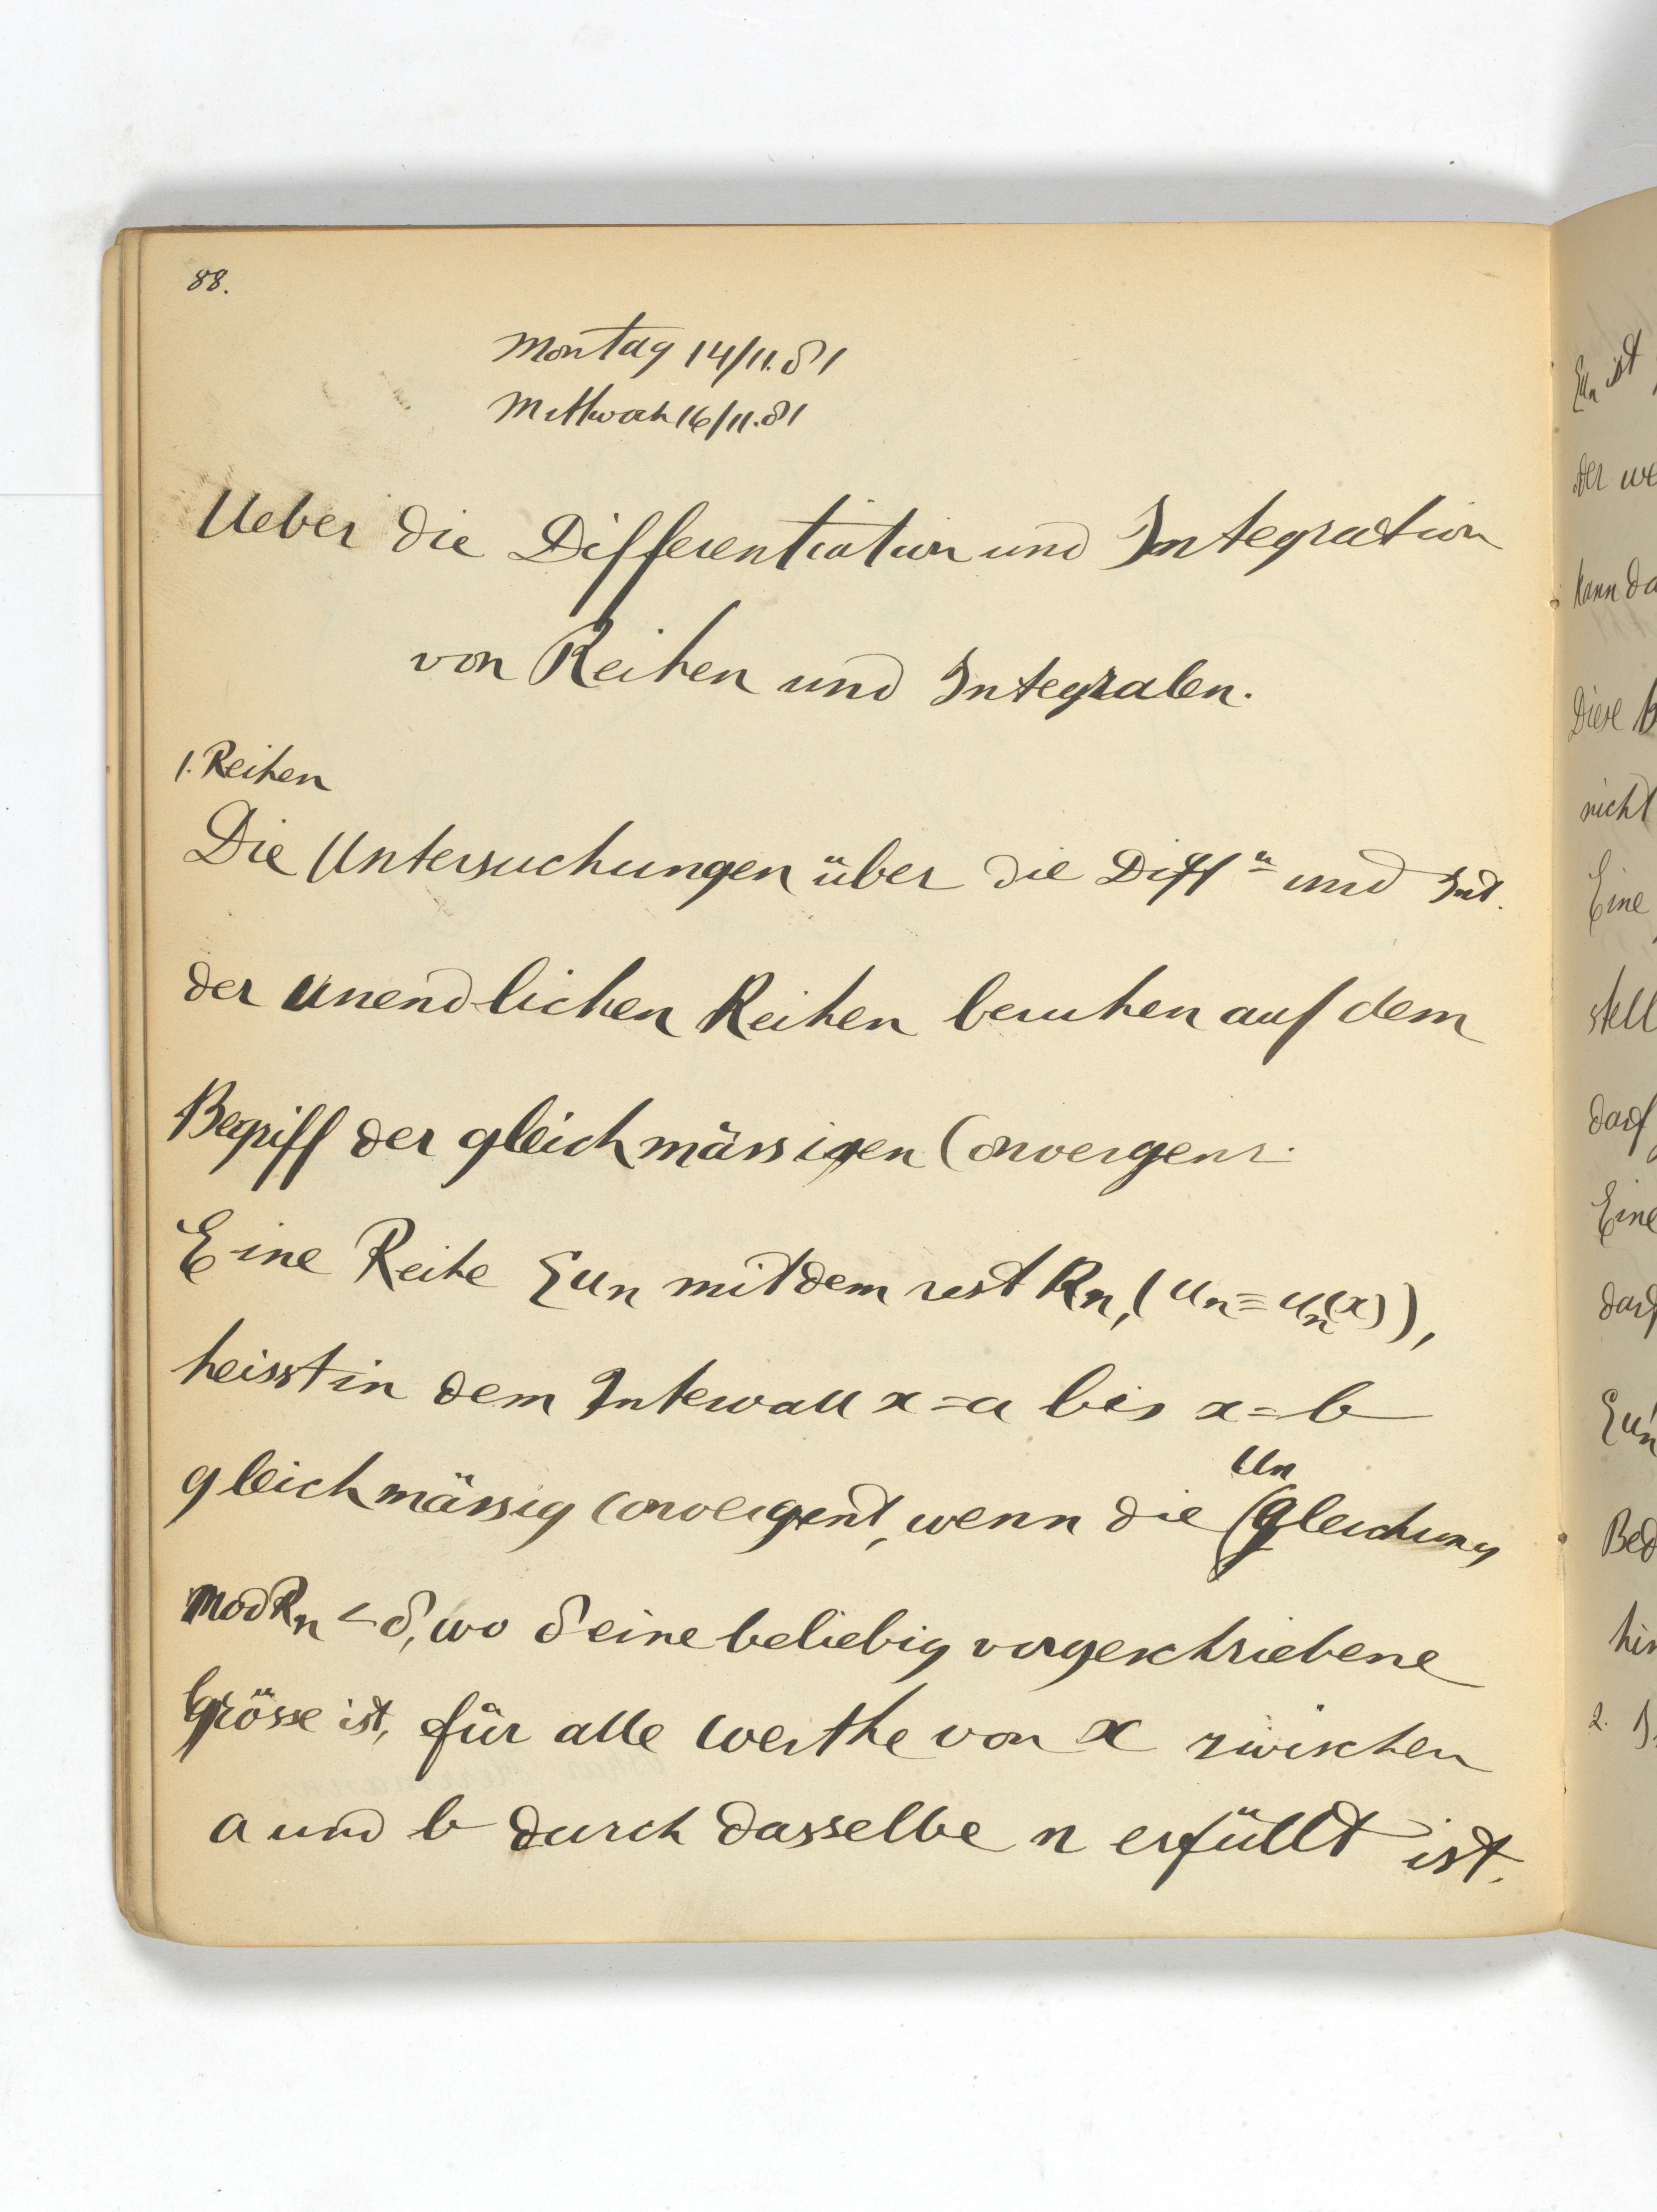 88.
Montag 14/11.81
Mittwoch 16/11.81
Ueber die Differentiation und Integration
von Reihen und Integralen.
1. Reihen
Die Untersuchungen über die Diff.n und Int.
der unendlichen Reihen beruhen auf dem
Begriff der gleichmässigen Convergenz.
Eine Reihe Σun mit dem rest Rn, (un = un(x)),
heisst in dem Intervall x = a bis x = b
gleichmässig convergent, wenn die Ungleichung
mod Rn < δ, wo δ eine beliebig vorgeschriebene
Grösse ist, für alle Werthe von x zwischen
a und b durch dasselbe n erfüllt ist.
Σun ist
der we
kann da
Diese B
nicht
Eine
stell
darf
Eine
darf
Σun
Bed
hin
2. I